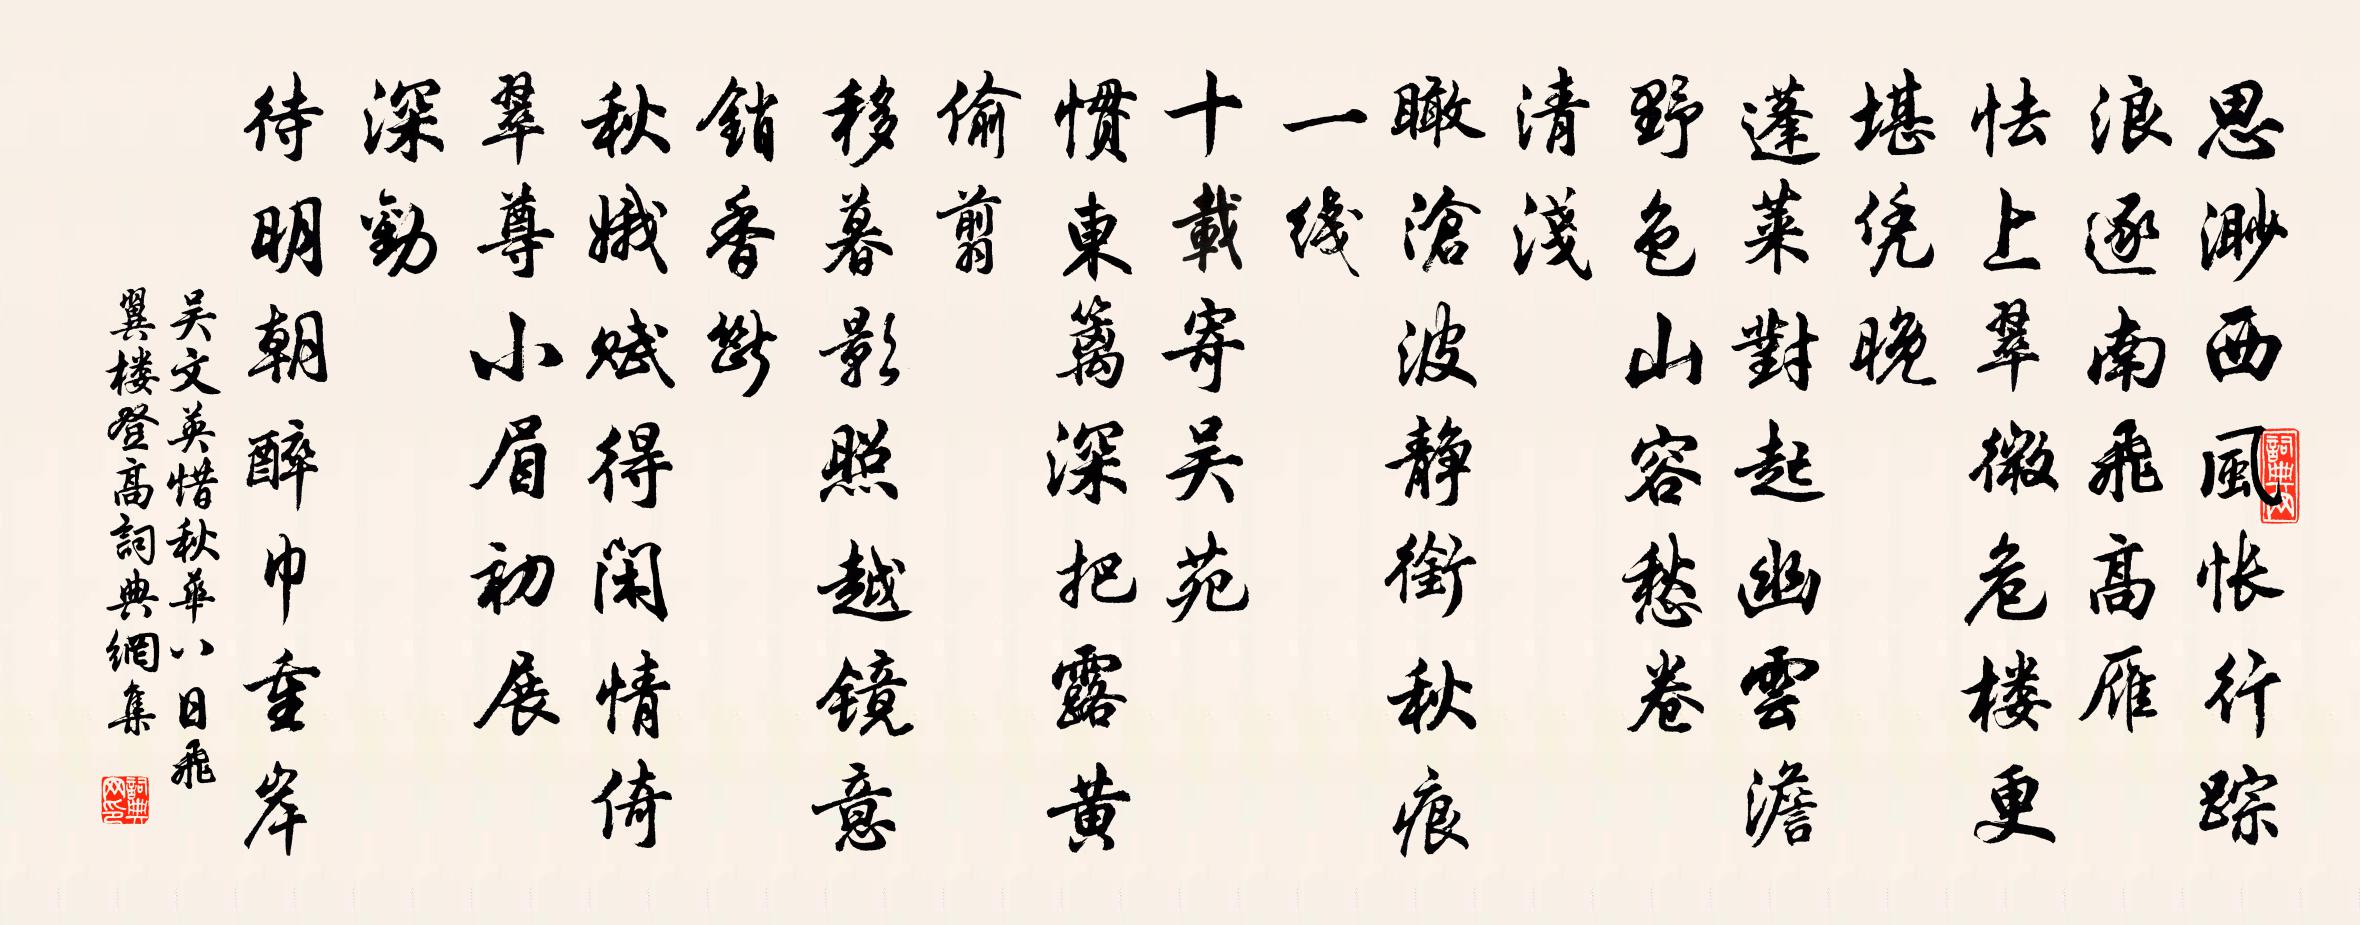 思渺西風怅行踪
浪逐南飛高雁
怯上翠微危楼更
堪凭晚
蓬莱對起幽雲澹
野色山容愁卷
清淺
瞰滄波静銜秋痕
一线
十載寄吴苑
慣東籬深把露黄
偷翦
移暮影照越镜意
銷香斷
秋娥赋得闲情倚
翠尊小眉初展
深勸
待明朝醉巾重岸
吴文英惜秋华八日飛
翼楼登高詞典網集
詞典网
詞典网印